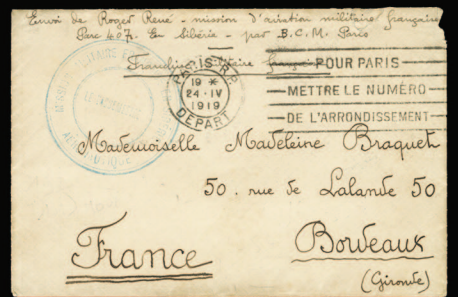 Envoi de Roger René - mission d'aviation militaire française
Parc 407. En Sibérie - par B.C.M. Paris
Franchise militaire française
PARIS R.P.
19 *
24 · IV
1919
DÉPART
POUR PARIS
METTRE LE NUMÉRO
DE L'ARRONDISSEMENT
MILITAIRE
AÉRONAUTIQUE
Mademoiselle Madeleine Braquet
50. rue de Lalande 50
France
Bordeaux
(Gironde)